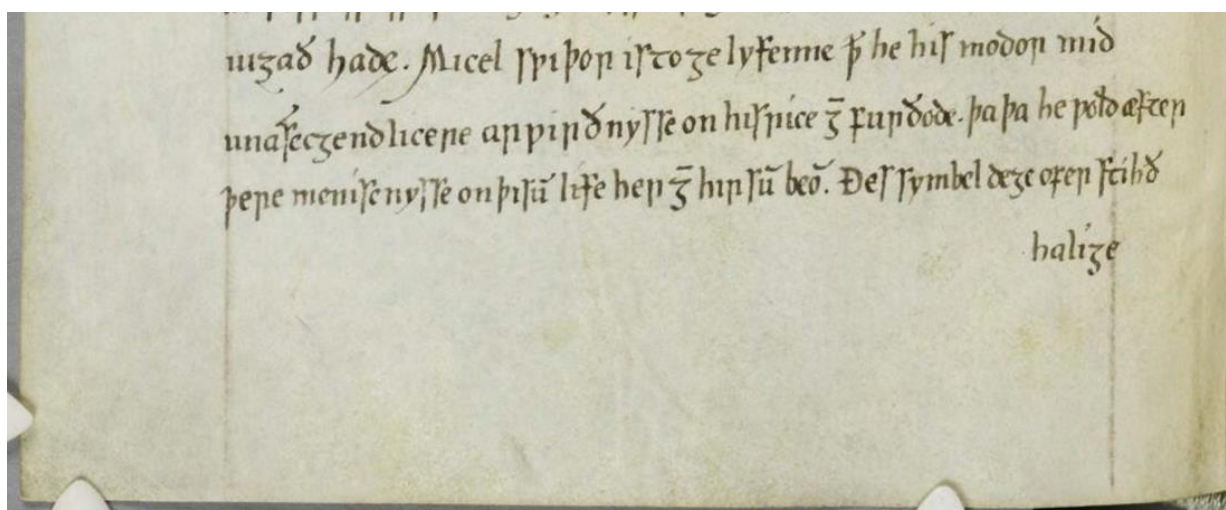 iugað hade. Micel sƿiþor is to ge lyfenne ꝥ he his modor mid
unasecgendlicere arƿirðnysse on his rice gē̄ furðode. þa þa he ƿold æfter
þere menisc nysse on þisū life her ḡ hir sū beō. Ðes symbel dege ofer stihð
halige